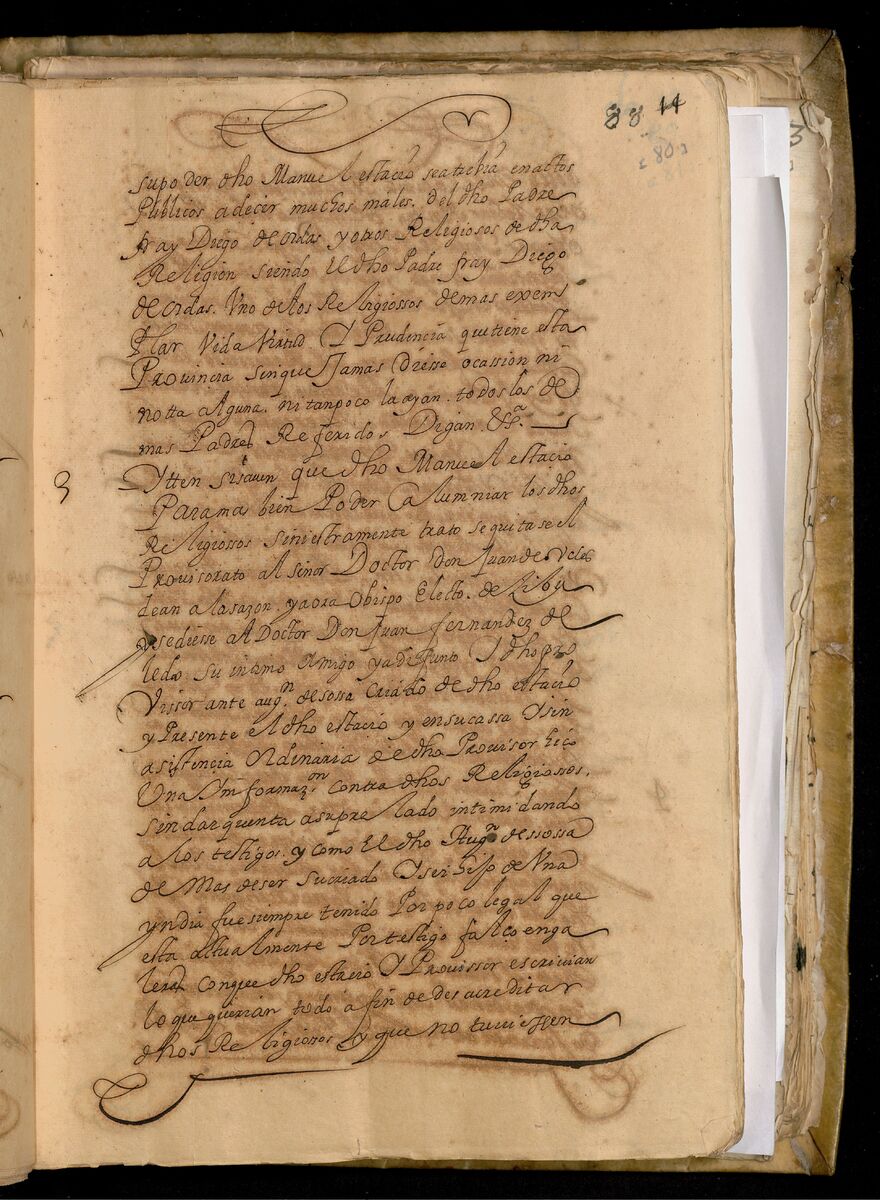 88 14
80
su poder dho Manuel estacio se atrebia en actos
Publicos a decer muchos males. del dho Padre
fray Diego de ordas y otros Religiosos de dha
Religion siendo El dho Padre fray Diego
de ordas. Uno de los Religiossos de mas exem
Plar Vida Virtud Y Prudencia que tiene esta
Provincia sin que Jamas diesse ocassion ni
notta alguna. ni tanpoco la ayan. todos los de
mas Padres Referidos Digan &ª.
3
Ytten si saven que dho Manuel estacio
Para mas bien Poder Calumniar los dhos
Religiossos siniestramente trato se quitase El
Provisorato al señor Doctor Don Juan de
dean a la sazon. y aora Obispo Electo. de
y se diesse al Doctor Don Juan fernandez de
ledo su intimo Amigo ya difunto Y dho pro
Vissor ante augn. de sossa Criado de dho estacio
y Presente el dho estacio y en su cassa Y sin
asistencia Ordinaria de dho Provisor hiço
Una Ynformazon. contra dhos Religiossos.
sin dar quenta a su prelado intimidando
a los testigos. y como El dho Augn. de sossa
de Mas de ser su criado Y ser hijo de Una
yndia fue siempre tenido Por poco legal que
esta actualmente Por testigo falço en ga
leras conque dho estacio Y Provissor escrivian
lo que querian todo a fin de desacreditar
dhos Religiossos y que no tuviessen